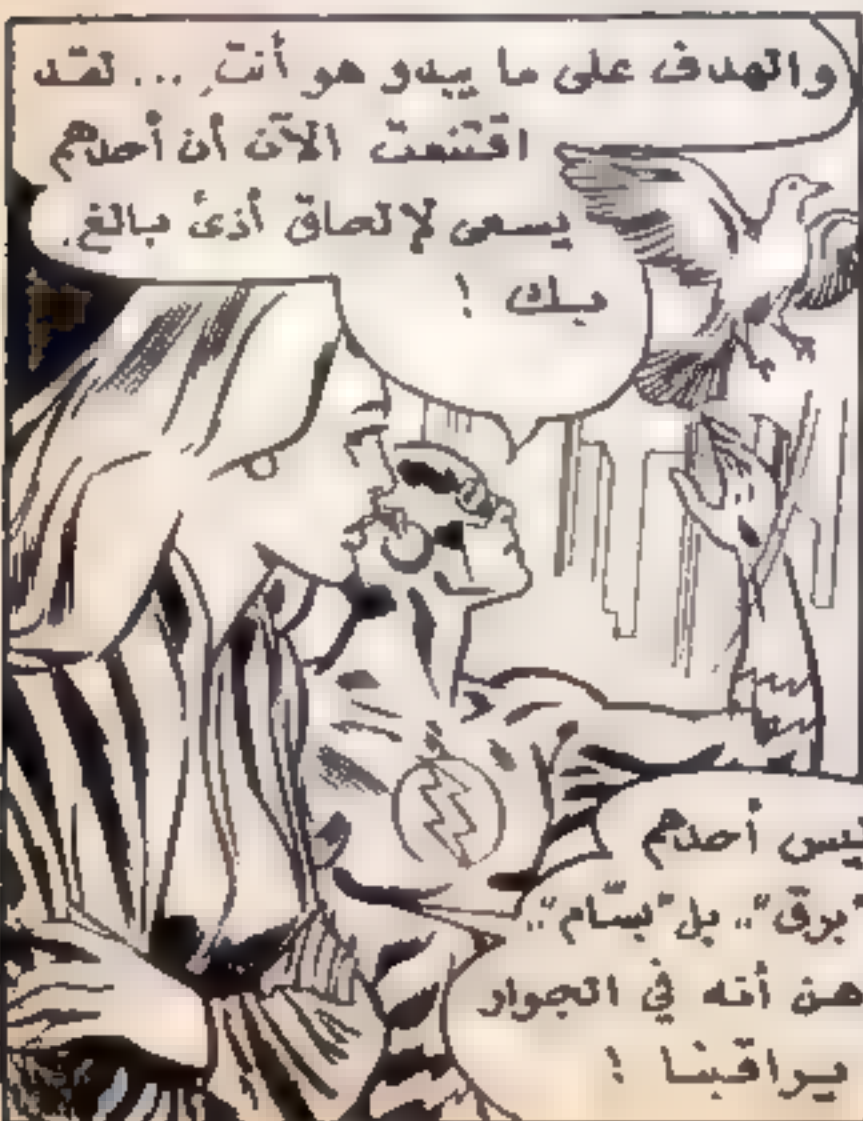 والهدف على ما يبدو هو أنتِ ... لقد
اقتنعتُ الآن أن أحدهم
يسعى لإلحاق أذىً بالغ
بك !
ليس أحدهم
"برق".. بل "بسّام"..
أنه في الجوار
يراقبنا !